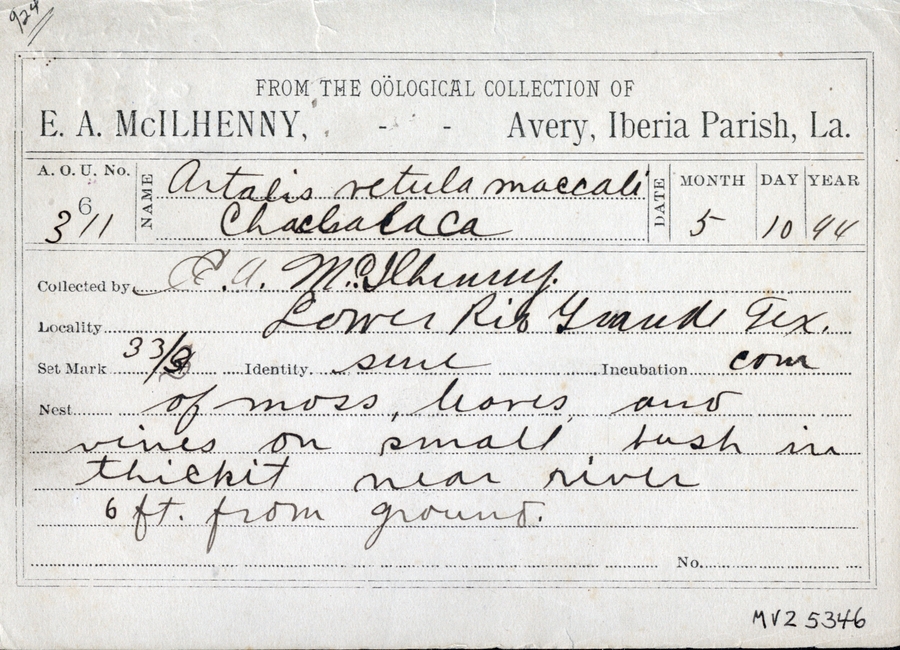 924
FROM THE OÖLOGICAL COLLECTION OF
E. A. McILHENNY, - - Avery, Iberia Parish, La.
A. O. U. No. 6 311 NAME Ortalis vetula maccali DATE MONTH DAY YEAR
Chachalaca 5 10 94
Collected by E. A. McIlhenny.
Locality Lower Rio Grande Tex.
Set Mark 33/3 Identity sure Incubation com
Nest of moss, leaves, and
vines on small bush in
thickit near river
6 ft. from ground.
No.
MVZ 5346